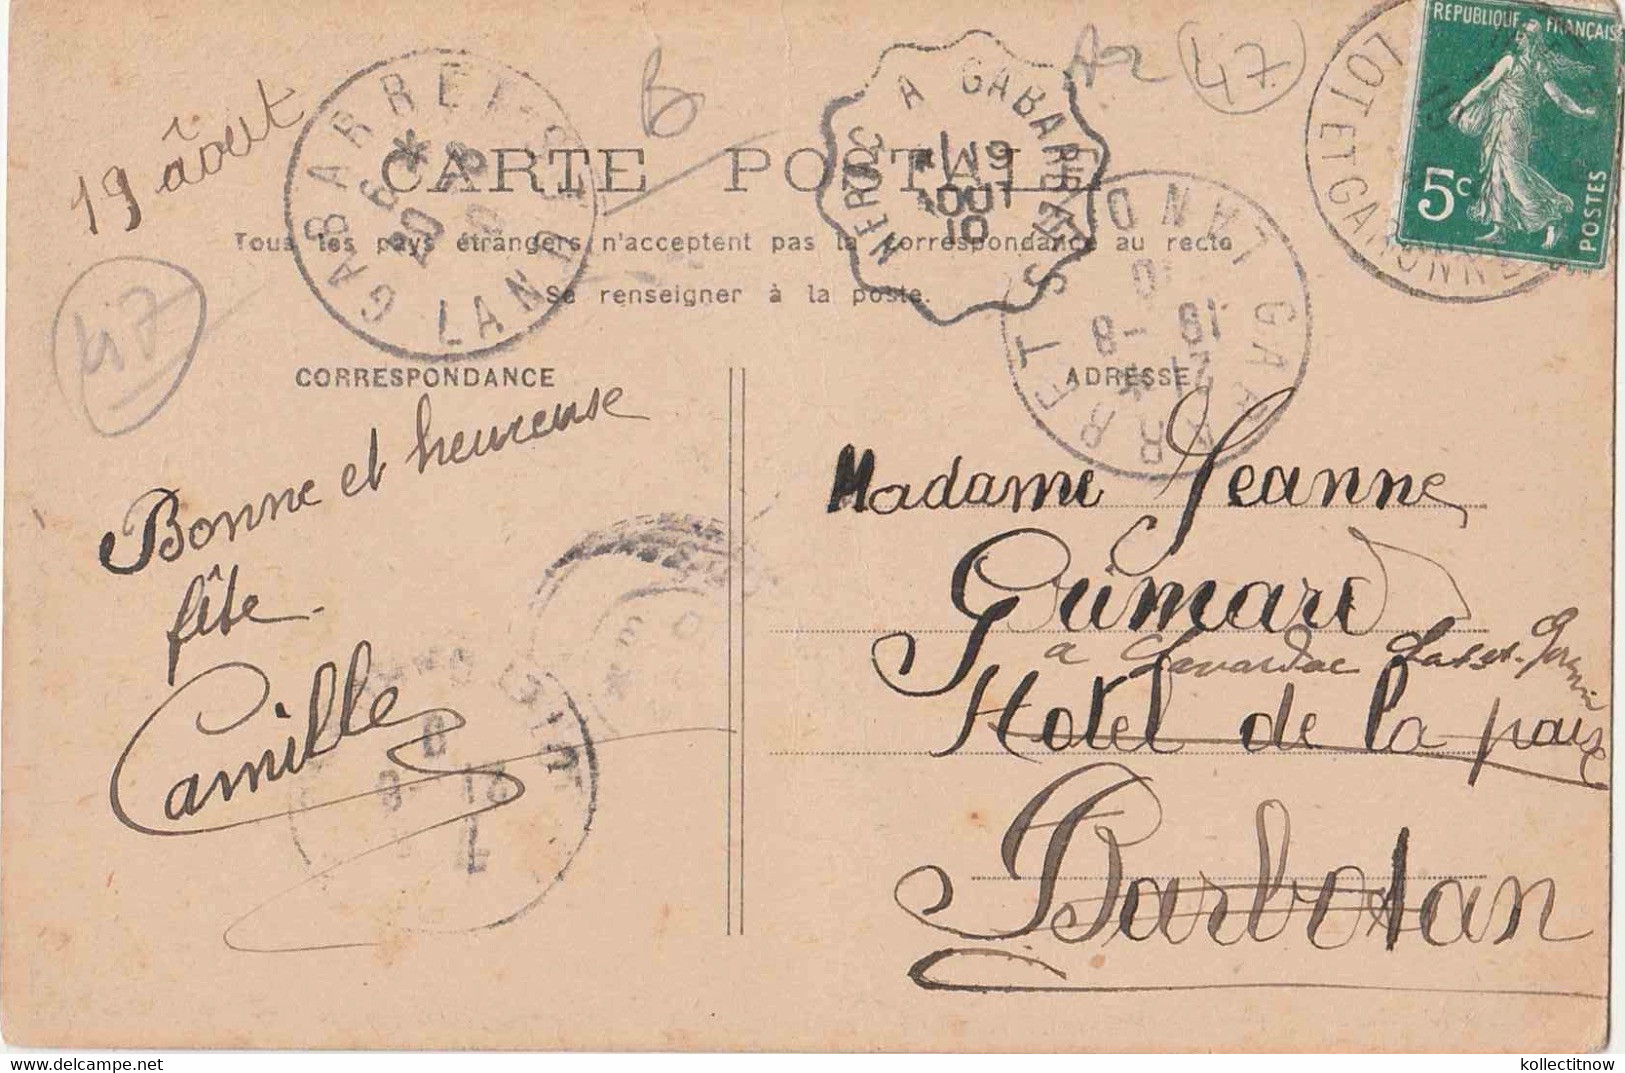 19 août
B
A2 47
47
REPUBLIQUE FRANÇAISE
5c
POSTES
LOT ET GARONNE
GABARRET
LANDES
20
NERAC A GABARRET
19
AOUT
10
GABARRET
LAND
19 - 8
10
CARTE POSTALE
Tous les pays étrangers n'acceptent pas la correspondance au recto
Se renseigner à la poste.
CORRESPONDANCE
ADRESSE
Bonne et heureuse
fête.
Camille
21 - 8
Madame Jeanne
Guimard
a Lavardac
Hotel de la paix
Barbotan
kollectitnow